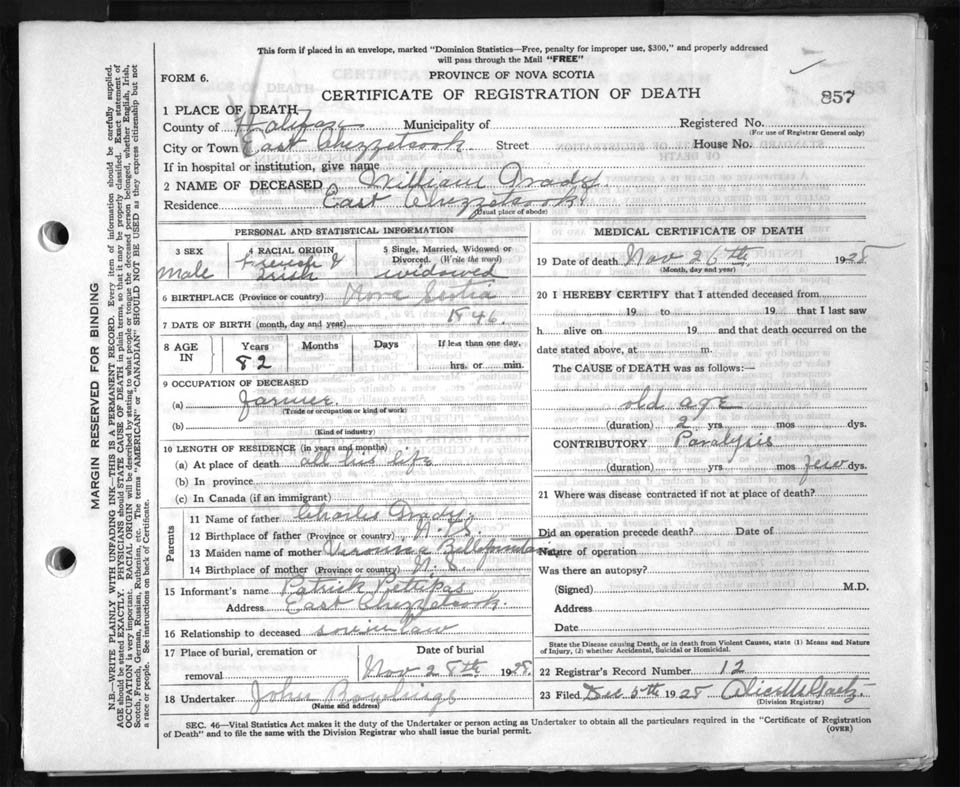 This form if placed in an envelope, marked "Dominion Statistics—Free, penalty for improper use, $300," and properly addressed
will pass through the Mail "FREE"
FORM 6.
PROVINCE OF NOVA SCOTIA
CERTIFICATE OF REGISTRATION OF DEATH
857
1 PLACE OF DEATH
County of Halifax Municipality of
Registered No.
(For use of Registrar General only)
City or Town East Chezzetcook Street House No.
If in hospital or institution, give name
2 NAME OF DECEASED William Grady
Residence East Chezzetcook
(Usual place of abode)
PERSONAL AND STATISTICAL INFORMATION
3 SEX
Male
4 RACIAL ORIGIN
French &
Irish
5 Single, Married, Widowed or
Divorced. (Write the word)
widowed
6 BIRTHPLACE (Province or country) Nova Scotia
7 DATE OF BIRTH (month, day and year) 1846.
8 AGE
IN
Years
82
Months
Days
If less than one day,
hrs. or min.
9 OCCUPATION OF DECEASED
(a) farmer.
(Trade or occupation or kind of work)
(b)
(Kind of industry)
10 LENGTH OF RESIDENCE (in years and months)
(a) At place of death all his life
(b) In province
(c) In Canada (if an immigrant)
Parents
11 Name of father Charles Grady.
12 Birthplace of father (Province or country) N.S.
13 Maiden name of mother Veronica Bellefountain
14 Birthplace of mother (Province or country) N.S.
15 Informant's name Patrick Petipas
Address East Chezzetcook.
16 Relationship to deceased son in law
17 Place of burial, cremation or
removal
Date of burial
Nov 28th 1928.
18 Undertaker John
(Name and address)
MEDICAL CERTIFICATE OF DEATH
19 Date of death Nov 26th 1928
(Month, day and year)
20 I HEREBY CERTIFY that I attended deceased from
19 to 19 that I last saw
h alive on 19 and that death occurred on the
date stated above, at m.
The CAUSE of DEATH was as follows:—
old age
(duration) 2 yrs mos dys.
CONTRIBUTORY Paralysis
(duration) yrs mos few dys.
21 Where was disease contracted if not at place of death?
Did an operation precede death? Date of
Nature of operation
Was there an autopsy?
(Signed) M.D.
Address
Date
State the Disease causing Death, or in death from Violent Causes, state (1) Means and Nature
of Injury, (2) whether Accidental, Suicidal or Homicidal.
22 Registrar's Record Number 12
23 Filed Dec 5th 1928
(Division Registrar)
SEC. 46—Vital Statistics Act makes it the duty of the Undertaker or person acting as Undertaker to obtain all the particulars required in the "Certificate of Registration
of Death" and to file the same with the Division Registrar who shall issue the burial permit.
(OVER)
MARGIN RESERVED FOR BINDING
N.B.—WRITE PLAINLY WITH UNFADING INK—THIS IS A PERMANENT RECORD. Every item of information should be carefully supplied.
AGE should be stated EXACTLY. PHYSICIANS should STATE CAUSE OF DEATH in plain terms, so that it may be properly classified. Exact statement of
OCCUPATION is very important. RACIAL ORIGIN will be described by stating to what people or tongue the deceased person belonged, whether English, Irish,
Scotch, French, German, Russian, Ruthenian, etc. The terms "AMERICAN" or "CANADIAN" SHOULD NOT BE USED as they express citizenship but not
a race or people. See instructions on back of Certificate.